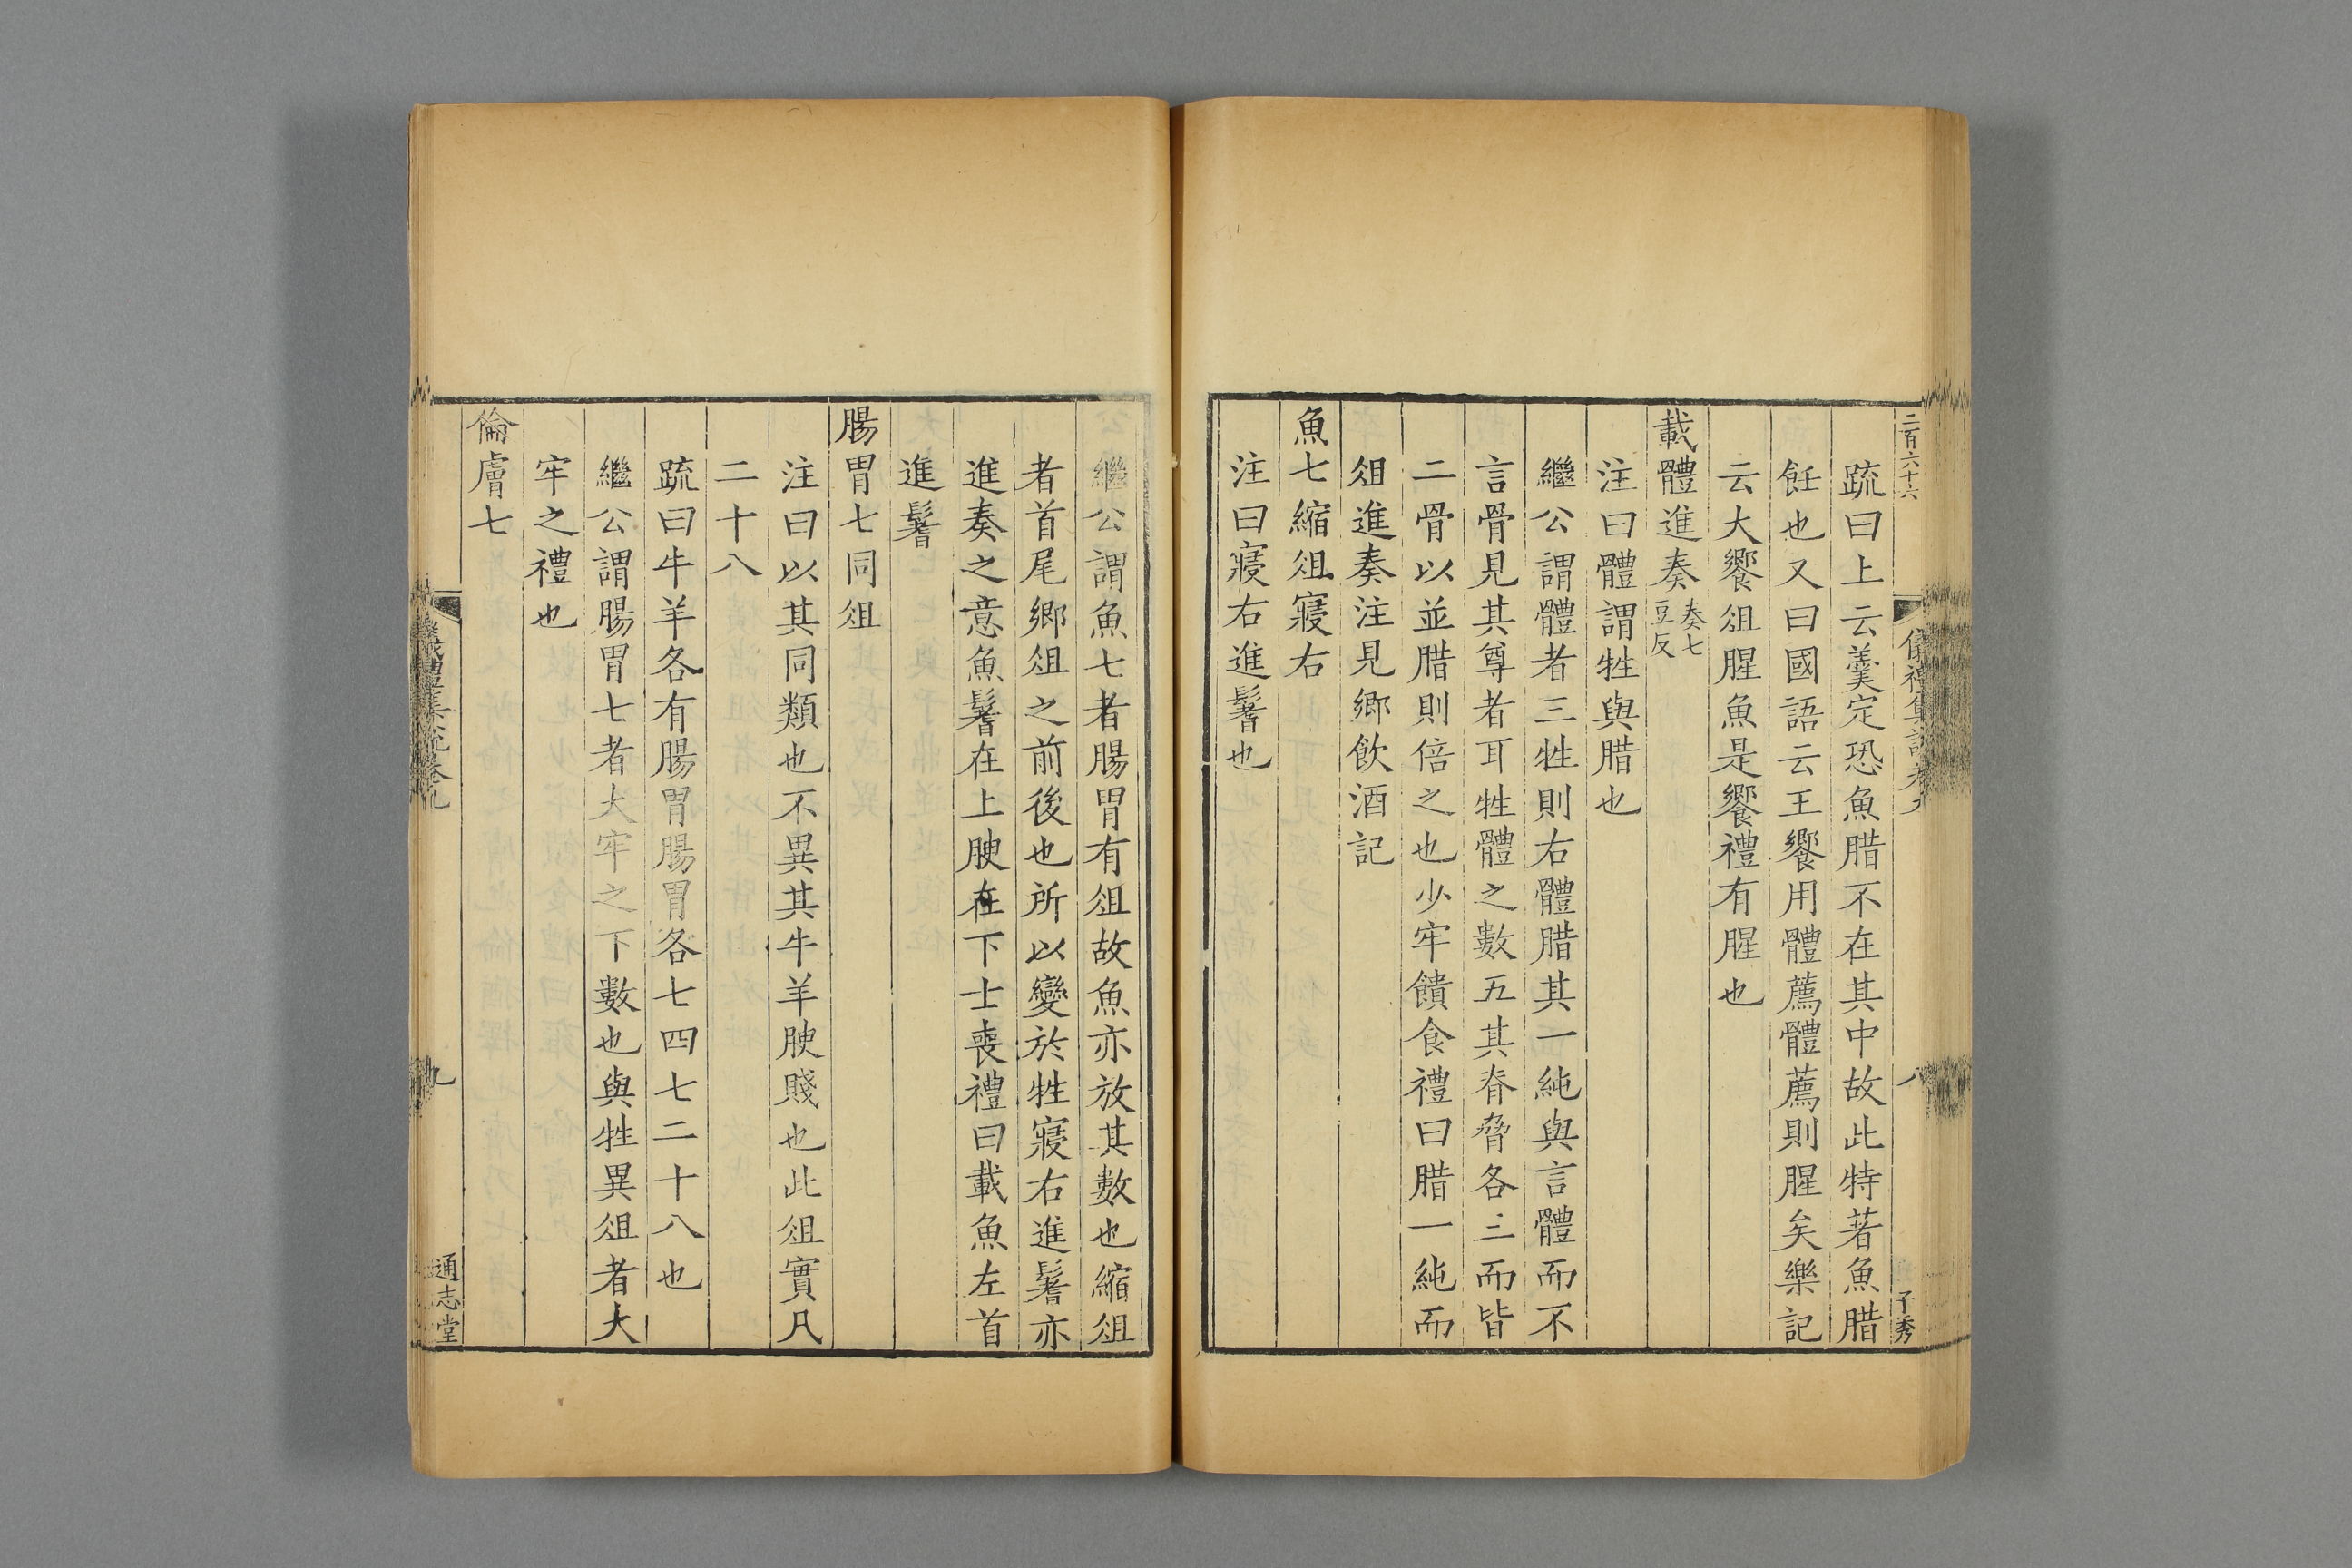 二百六十六
儀禮集說卷九
八
子秀
疏曰上云羹定恐魚腊不在其中故此特著魚腊
飪也又曰國語云王饗用體薦體薦則腥矣樂記
云大饗俎腥魚是饗禮有腥也
載體進奏奏七豆反
注曰體謂牲與腊也
繼公謂體者三牲則右體腊其一純與言體而不
言骨見其尊者耳牲體之數五其脊脅各三而皆
二骨以並腊則倍之也少牢饋食禮曰腊一純而
俎進奏注見鄉飲酒記
魚七縮俎寢右
注曰寢右進鬐也
繼公謂魚七者腸胃有俎故魚亦放其數也縮俎
者首尾鄉俎之前後也所以變於牲寢右進鬐亦
進奏之意魚鬐在上腴在下士喪禮曰載魚左首
進鬐
腸胃七同俎
注曰以其同類也不異其牛羊腴賤也此俎實凡
二十八
疏曰牛羊各有腸胃腸胃各七四七二十八也
繼公謂腸胃七者大牢之下數也與牲異俎者大
牢之禮也
倫膚七
儀禮集說卷九
九
通志堂